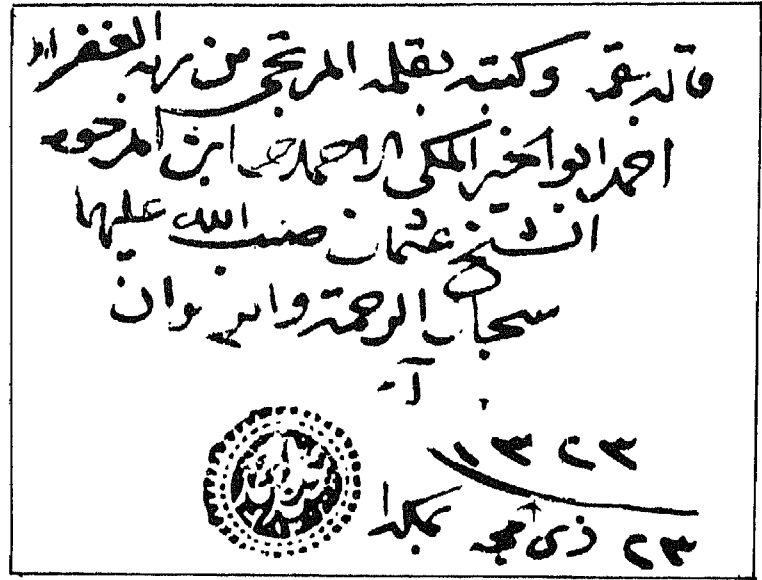 قاله بفمه وكتبه بقلمه المرتجى من ربه الغفران
احمد ابو الخير المكى الاحمدى ابن المرحوم
الشيخ عثمان صب الله عليهما
سحاب الرحمة والرضوان
١٣٢٣
٢٣ ذى حجه